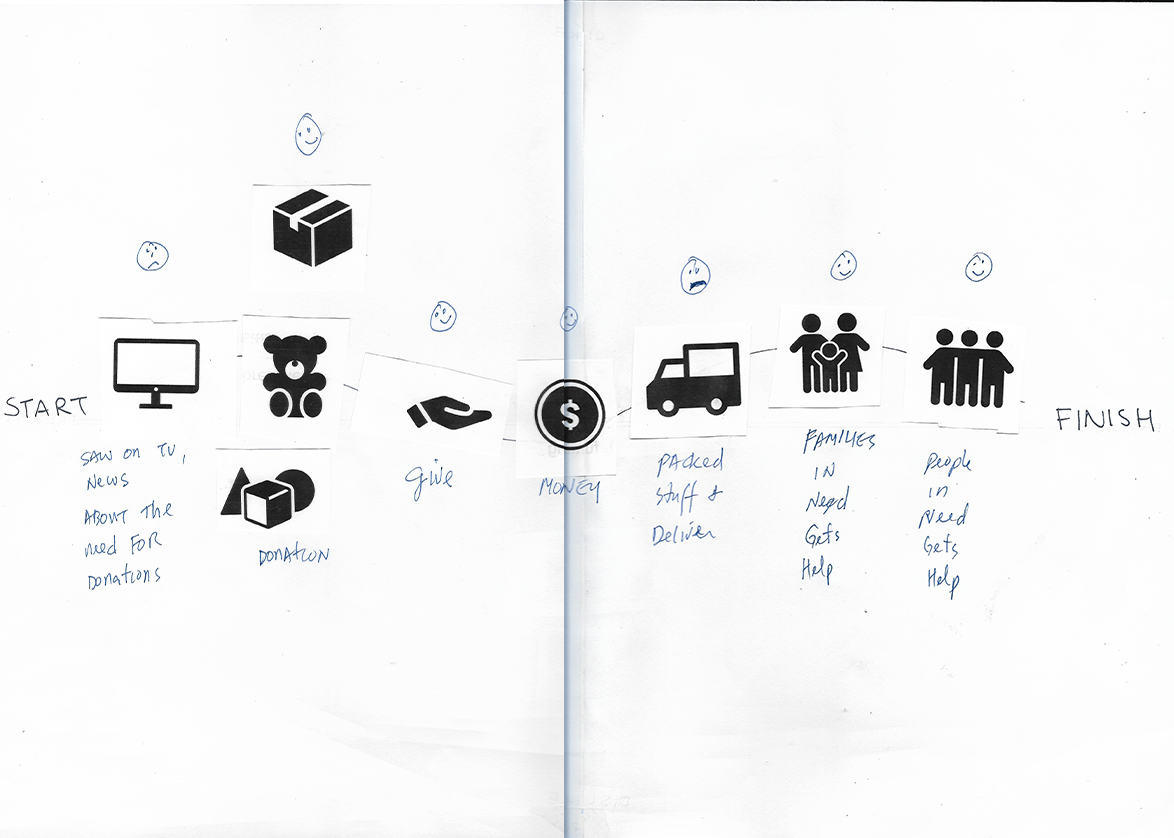 START
SAW ON TV,
NEWS
ABOUT The
need FOR
Donations
DONATION
give
$
MONEY
PACKED
Stuff &
Deliver
FAMILIES
IN
Need
Gets
Help
People
in
Need
Gets
Help
FINISH